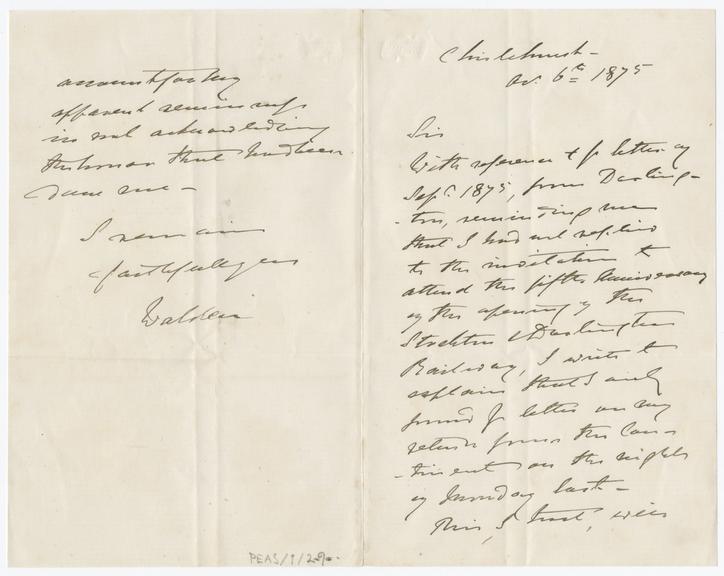 Chislehurst -
Oct. 6th 1875
Sir
With reference to yr letter of
Sept. 1875, from Darling-
-ton, reminding me
that I had not replied
to the invitation to
attend the fiftieth Anniversary
of the opening of the
Stockton & Darlington
Railway, I write to
explain that I only
found yr letter on my
return from the Con-
-tinent on the night
of Monday last -
This, I trust, will
account for my
apparent remissness
in not acknowledging
the honor that had been
done me -
I remain
faithfully yrs
Walden
PEAS/1/29